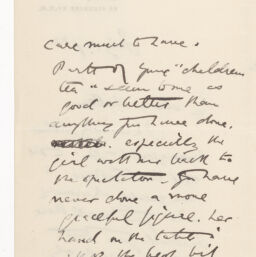 care much to have.
Parts of your "children's
tea" seem to me as
good or better than
anything you have done.
especially the
girl with her back to
the spectator. You have
never done a more
graceful figure. her
hand on the table is
the best bit